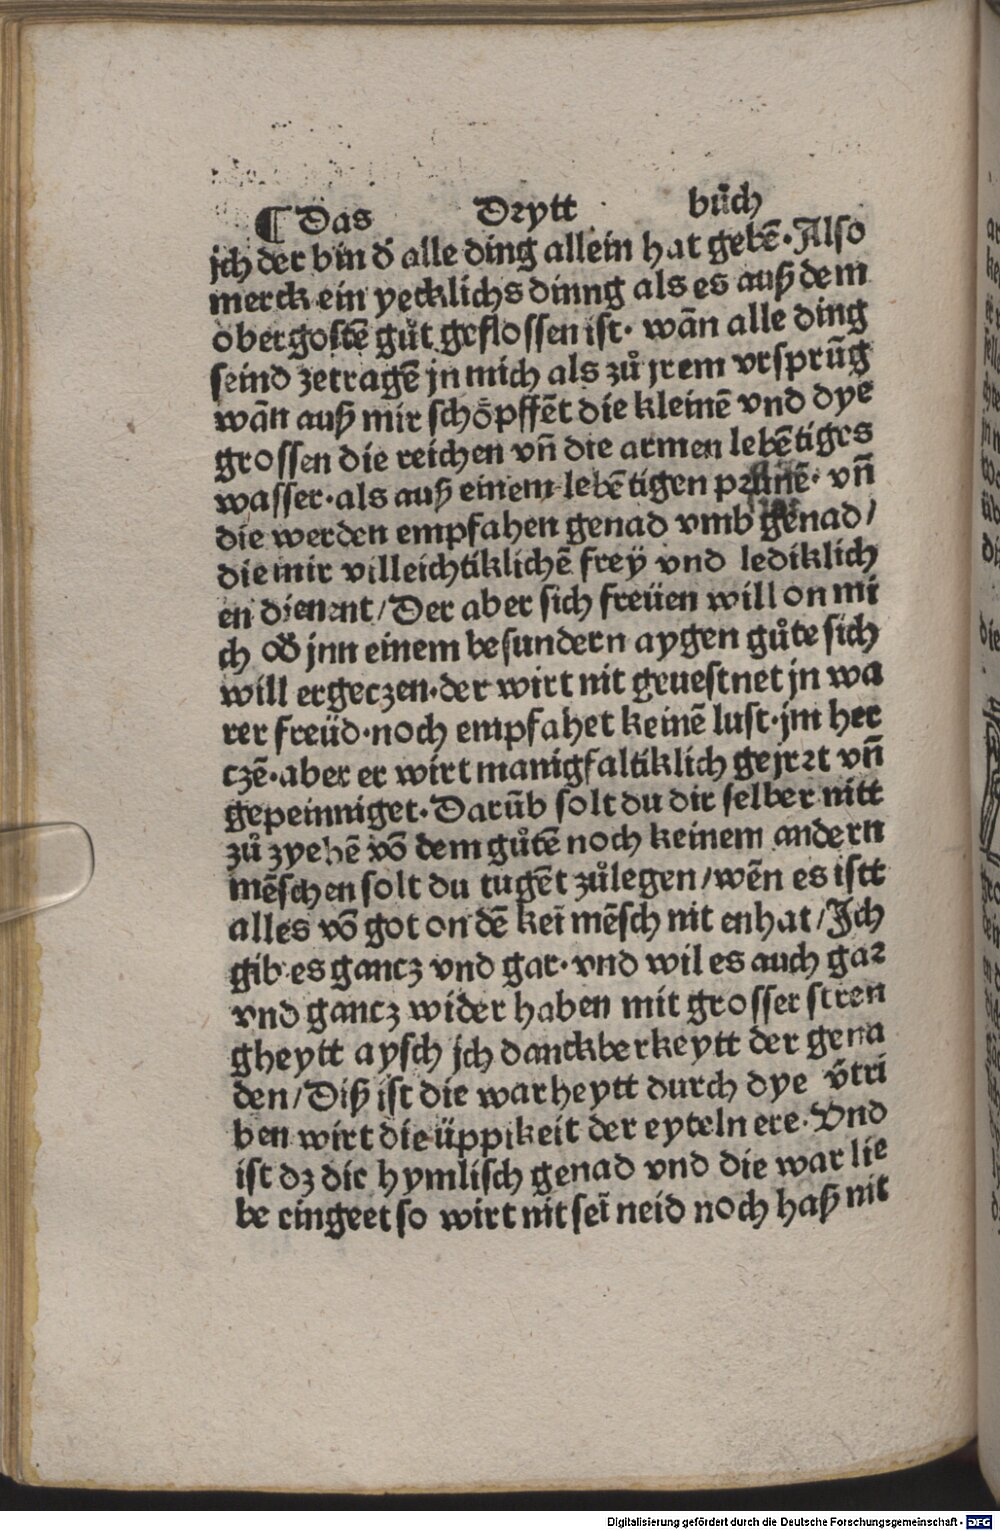 ¶ Das Drytt bůch
jch der bin d̕ alle ding allein hat gebē. Also
merck ein yecklichs dinng als es auß dem
obergostē gůt geflossen ist. wān alle ding
seind zetragē jn mich als zů jrem vrsprūg
wān auß mir schöpffēt die kleinē vnd dye
grossen die reichen vñ die armen lebētiges
wasser. als auß einem lebētigen prūnē. vñ
die werden empfahen genad vmb genad/
die mir villeichtiklichē frey vnd lediklich
en dienent/Der aber sich freüen will on mi
ch od̕ jnn einem besundern aygen gůte sich
will ergeczen. der wirt nit geuestnet jn wa
rer freüd. noch empfahet keinē lust. jm her
czē. aber er wirt manigfaltiklich gejrrt vñ
gepeinniget. Darūb solt du dir selber nitt
zů zyehē vō dem gůtē noch keinem andern
mēschen solt du tugēt zůlegen/wēn es istt
alles vō got on dē kei mēsch nit enhat/Ich
gib es gancz vnd gar. vnd wil es auch gar
vnd gancz wider haben mit grosser stren
gheytt aysch jch danckberkeytt der gena
den/Diß ist die warheytt durch dye v̕tri
ben wirt die üppikeit der eyteln ere. Vnd
ist dz dir hymlisch genad vnd die war lie
be eingeet so wirt nit sei neid noch haß nit
Digitalisierung gefördert durch die Deutsche Forschungsgemeinschaft - DFG